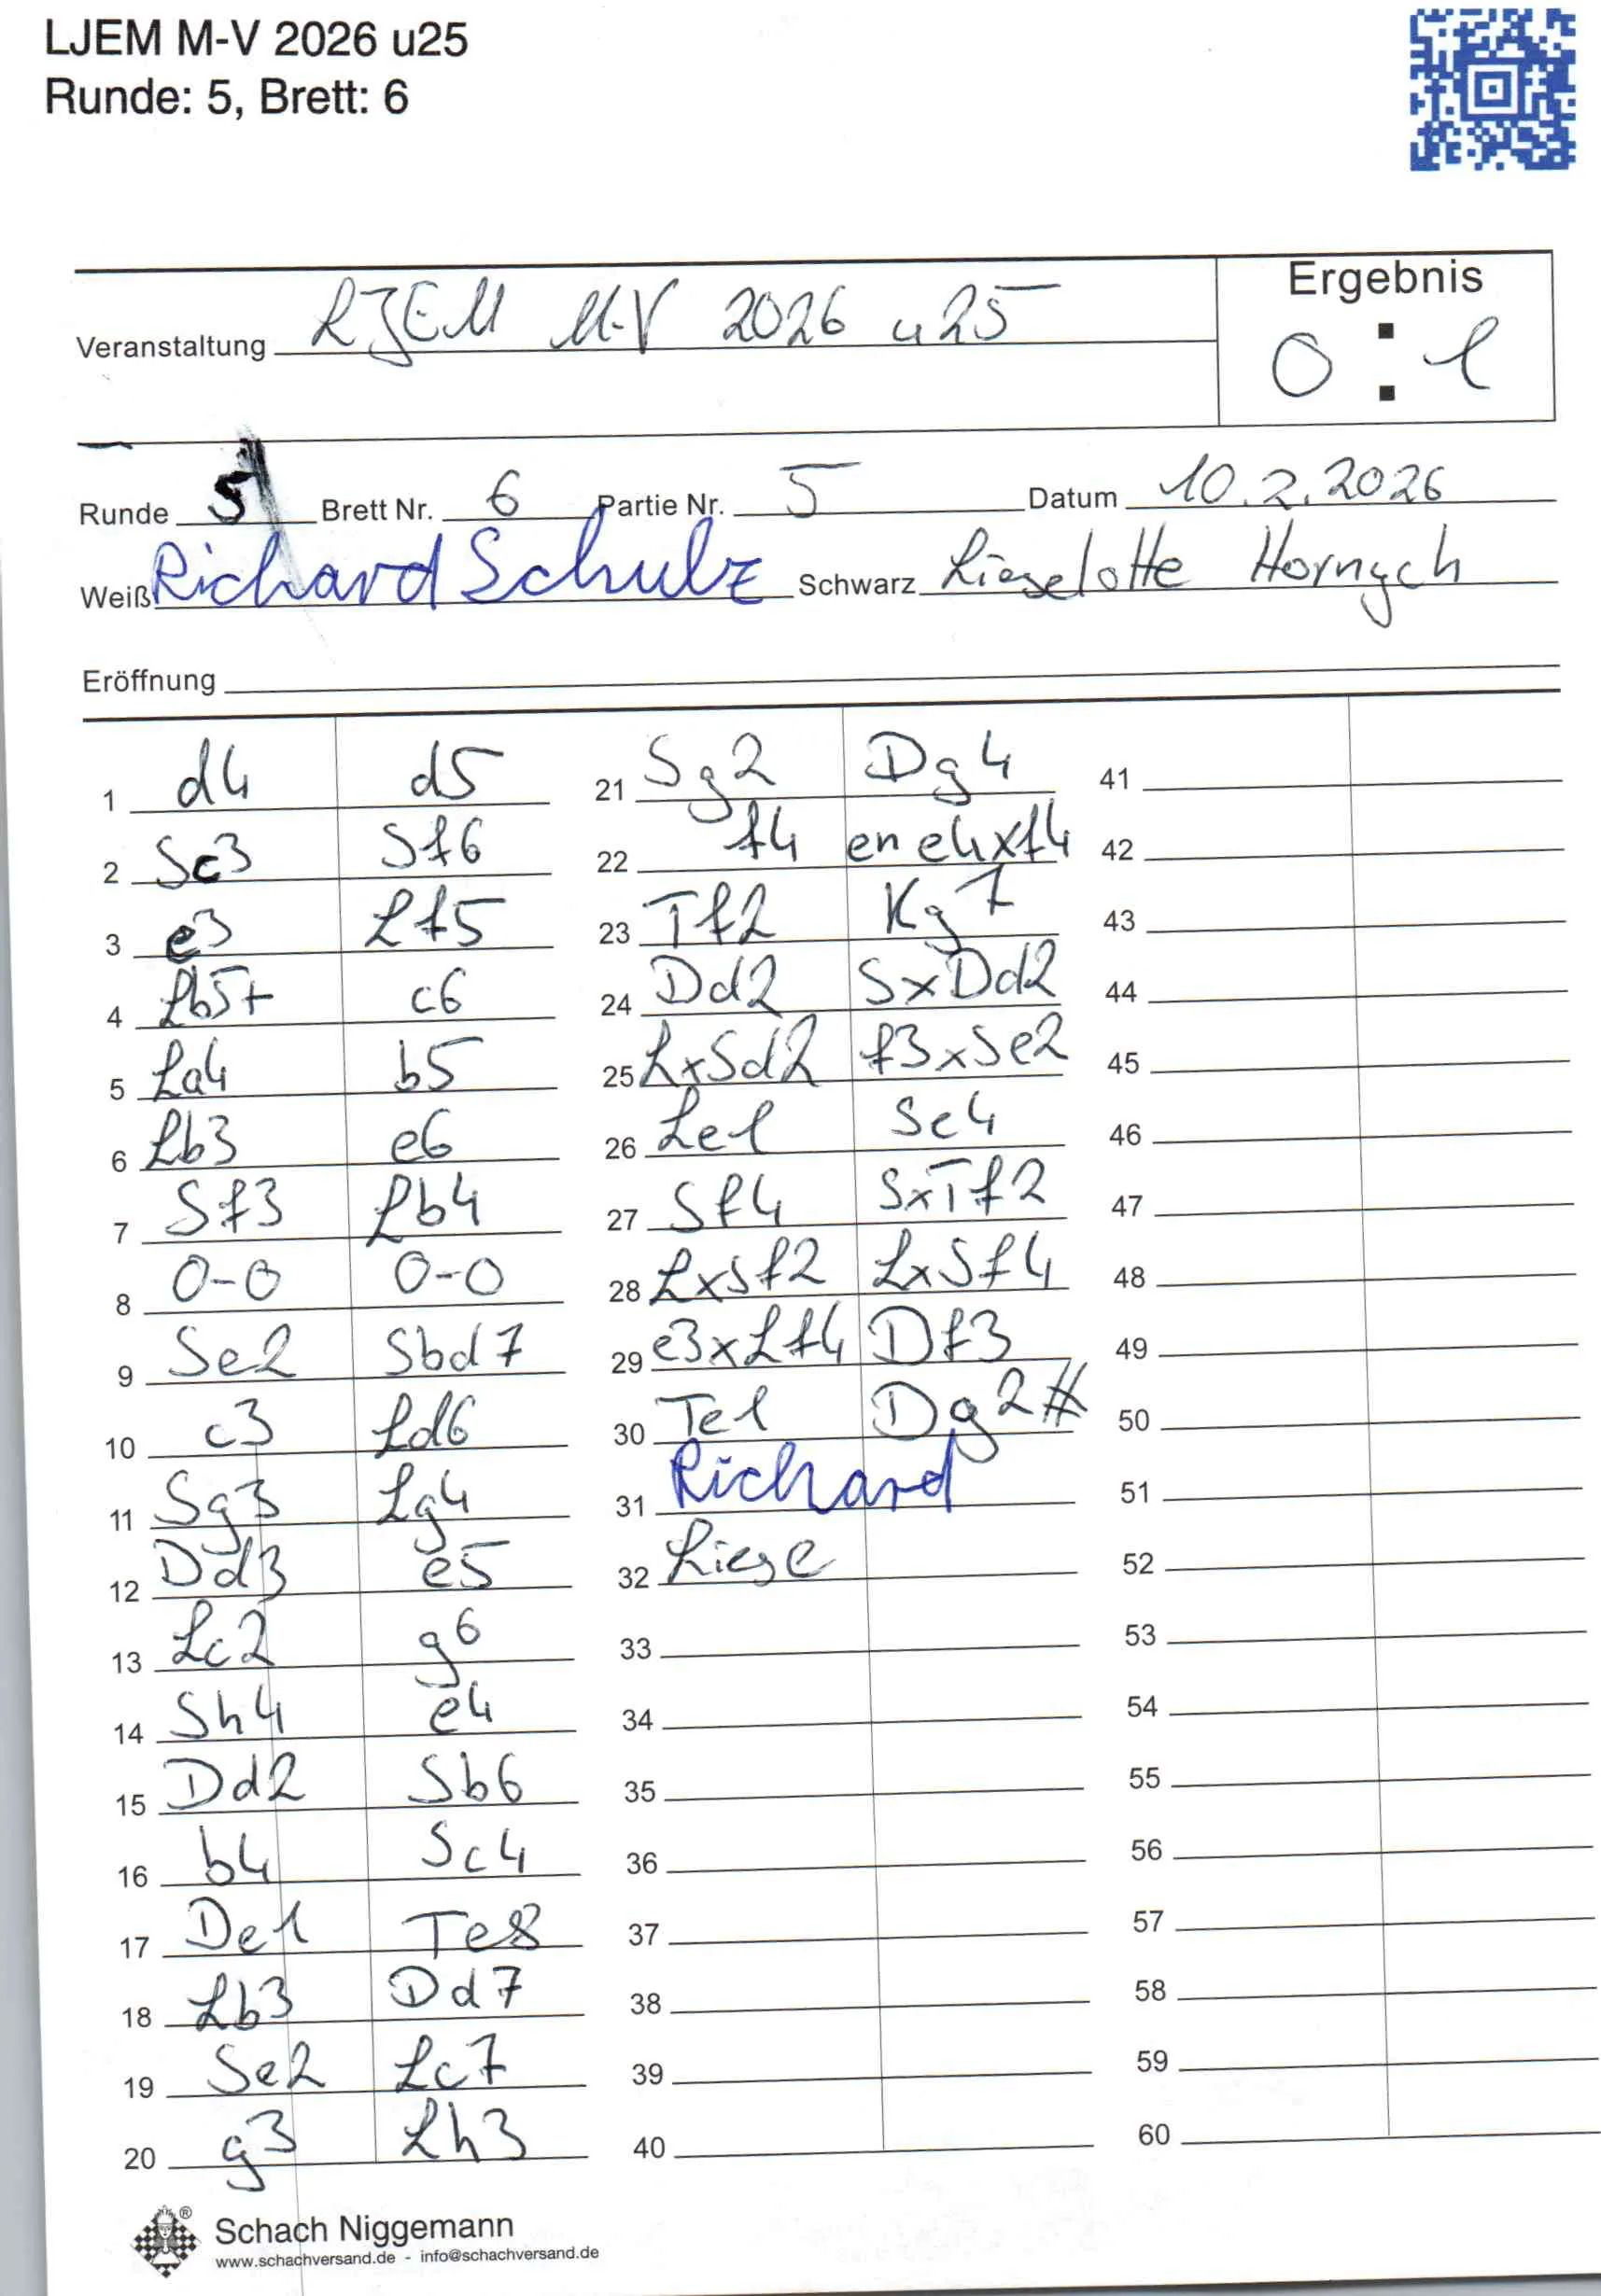 LJEM M-V 2026 u25
Runde: 5, Brett: 6
Ergebnis
Veranstaltung LJEM M-V 2026 u25
0 : 1
Runde 5 Brett Nr. 6 Partie Nr. 5 Datum 10.2.2026
Weiß Richard Schulz Schwarz Lieselotte Hornych
Eröffnung
1 d4 d5
2 Sc3 Sf6
3 e3 Lf5
4 Lb5+ c6
5 La4 b5
6 Lb3 e6
7 Sf3 Lb4
8 0-0 0-0
9 Se2 Sbd7
10 c3 Ld6
11 Sg3 Lg4
12 Dd3 e5
13 Lc2 g6
14 Sh4 e4
15 Dd2 Sb6
16 b4 Sc4
17 De1 Te8
18 Lb3 Dd7
19 Se2 Lc7
20 g3 Lh3
21 Sg2 Dg4
22 f4 en e4xf4
23 Tf2 Kg7
24 Dd2 SxDd2
25 LxSd2 f3xSe2
26 Le1 Se4
27 Sf4 SxTf2
28 LxSf2 LxSf4
29 e3xLf4 Df3
30 Te1 Dg2#
31 Richard
32 Liese
33
34
35
36
37
38
39
40
41
42
43
44
45
46
47
48
49
50
51
52
53
54
55
56
57
58
59
60
®
Schach Niggemann
www.schachversand.de - info@schachversand.de